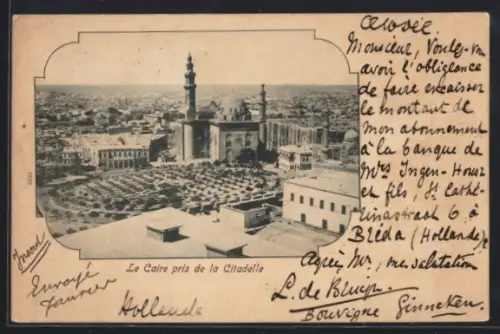 Monsieur, Voulez-vous
avoir l'obligeance
de faire encaisser
le montant de
mon abonnement
à la banque de
Mrs Ingen-Housz
et fils, St Cathe-
rinastraat 6 à
Bréda (Hollande)
Agréez Mr, mes salutation
L. de Bruyn.
Bouvigne Ginneken.
Le Caire pris de la Citadelle
Envoyé
Hollende